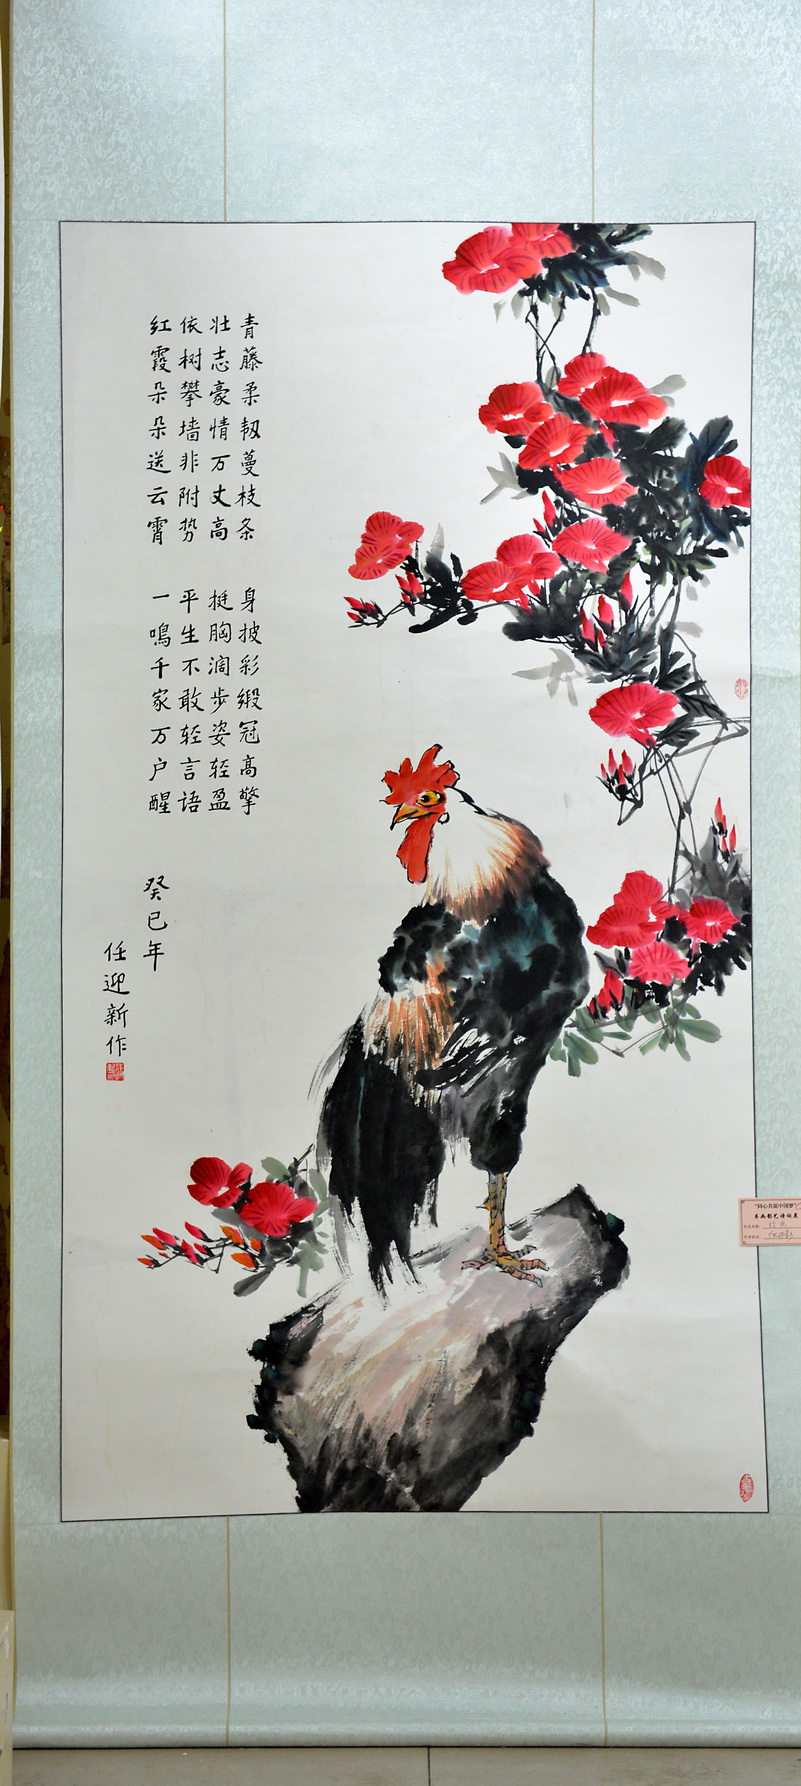 青藤柔韧蔓枝条
壮志豪情万丈高
依树攀墙非附势
红霞朵朵送云霄
身披彩缎冠高擎
挺胸阔步姿轻盈
平生不敢轻言语
一鸣千家万户醒
癸巳年
任迎新作
"同心共筑中国梦"
书画影艺诗词展